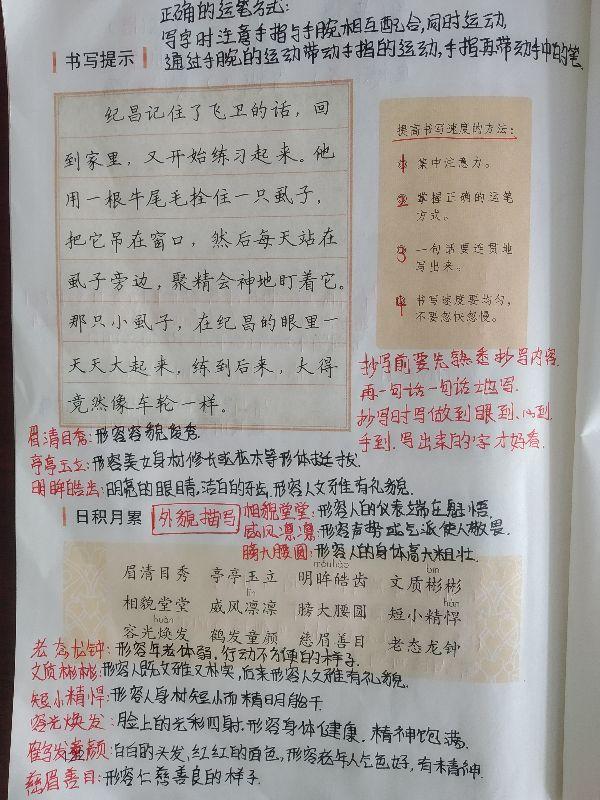 正确的运笔方式:
写字时注意手指与手腕相互配合,同时运动,
通过手腕的运动带动手指的运动,手指再带动手中的笔.
书写提示
纪昌记住了飞卫的话，回
到家里，又开始练习起来。他
用一根牛尾毛拴住一只虱子，
把它吊在窗口，然后每天站在
虱子旁边，聚精会神地盯着它。
那只小虱子，在纪昌的眼里一
天天大起来，练到后来，大得
竟然像车轮一样。
提高书写速度的方法：
1 集中注意力。
2 掌握正确的运笔
方式。
3 一句话要连贯地
写出来。
4 书写速度要均匀，
不要忽快忽慢。
抄写前要先熟悉抄写内容,
再一句话一句话地写.
抄写时写做到眼到、心到
手到.写出来的字才好看.
眉清目秀:形容容貌俊秀.
亭亭玉立:形容美女身材修长或花木等形体挺拔.
明眸皓齿:明亮的眼睛,洁白的牙齿,形容人文雅有礼貌.
日积月累
外貌描写
相貌堂堂:形容人的仪表端庄魁梧.
威风凛凛:形容声势或气派使人敬畏.
膀大腰圆:形容人的身体高大粗壮.
móu hào
bīn
眉清目秀 亭亭玉立 明眸皓齿 文质彬彬
lǐn
hàn
相貌堂堂 威风凛凛 膀大腰圆 短小精悍
huàn
容光焕发 鹤发童颜 慈眉善目 老态龙钟
老态龙钟:形容年老体弱,行动不方便的样子.
文质彬彬:形容人既文雅又朴实,后来形容人文雅有礼貌.
短小精悍:形容人身材短小而精明能干.
容光焕发:脸上的光彩四射.形容身体健康、精神饱满.
鹤发童颜:白白的头发,红红的面色,形容老年人气色好,有精神.
慈眉善目:形容仁慈善良的样子.